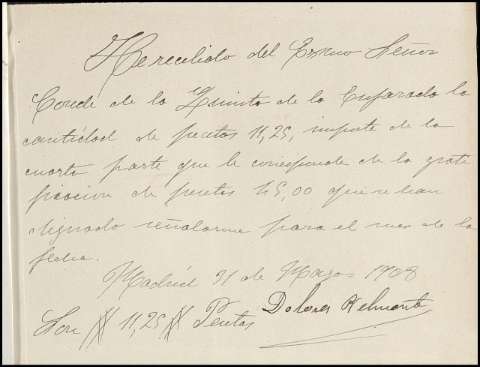 He recibido del Exmo Señor
Conde de la Quinta de la Enjarada la
cantidad de pesetas 11,25, importe de la
cuarta parte que le corresponde de la grati
ficacion de pesetas 45,00 que se han
dignado señalarme para el mes de la
fecha.
Madrid 31 de Marzo 1908
Son # 11,25 # Pesetas
Dolores Belmonte